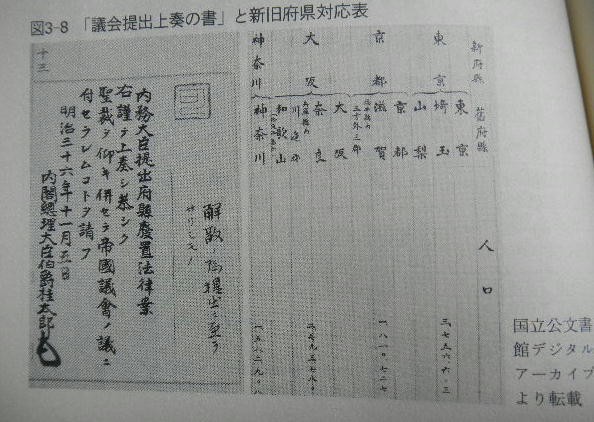 図3-8 「議会提出上奏の書」と新旧府県対応表
新府縣
舊府縣
人口
東京
東京
埼玉
山梨
京都
京都
滋賀
大阪
大阪
奈良
和歌山
神奈川
神奈川
解散ノ為提出ニ至ラ
サリシモノ
内務大臣提出府縣廢置法律案
右謹テ上奏シ恭シク
聖裁ヲ仰キ併セテ帝國議會ノ議ニ
付セラレムコトヲ請フ
明治三十六年十一月
内閣總理大臣伯爵桂太郎
十三
国立公文書
館デジタル
アーカイブ
より転載